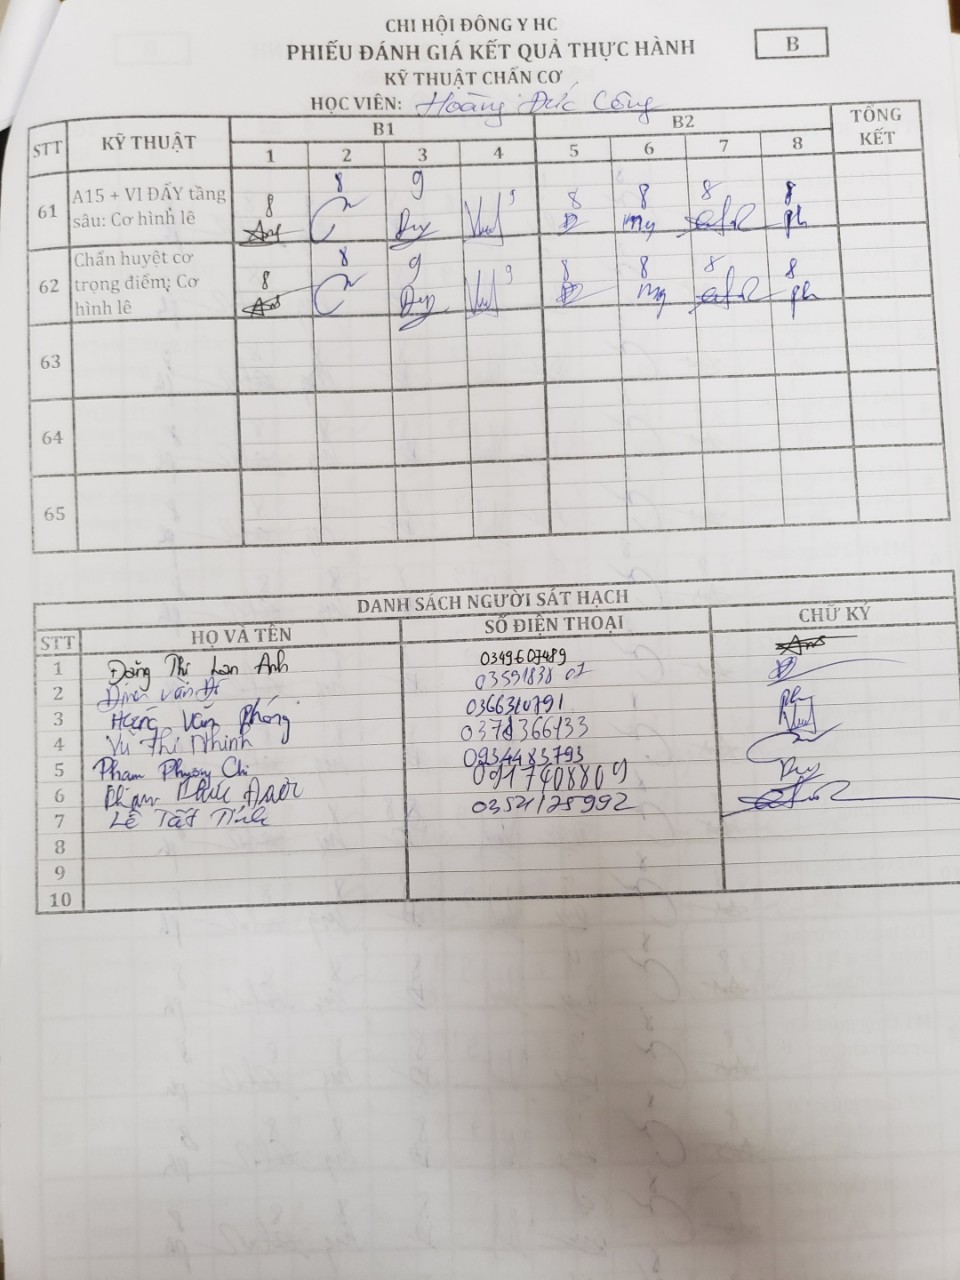 CHI HỘI ĐÔNG Y HC
PHIẾU ĐÁNH GIÁ KẾT QUẢ THỰC HÀNH
B
KỸ THUẬT CHẨN CƠ
HỌC VIÊN: Hoàng Đức Công
STT KỸ THUẬT B1 B2 TỔNG KẾT
1 2 3 4 5 6 7 8
61 A15 + VI ĐẨY tầng sâu: Cơ hình lê 8 8 9 9 8 8 8 8
Anh Duy My ph
62 Chẩn huyệt cơ trọng điểm: Cơ hình lê 8 8 9 9 8 8 8 8
Anh Duy My ph
63
64
65
DANH SÁCH NGƯỜI SÁT HẠCH
STT HỌ VÀ TÊN SỐ ĐIỆN THOẠI CHỮ KÝ
1 Đặng Thị Lan Anh 0349607489 Anh
2 Đinh Văn 03591838 07
3 Hoàng Văn Phóng 0366310791 ph
4 Vũ Thị Nhinh 0378366133
5 Phạm Phương Chi 0934483793
6 Phạm 0917408809 Duy
7 Lê Tất Tính 03521125992
8
9
10